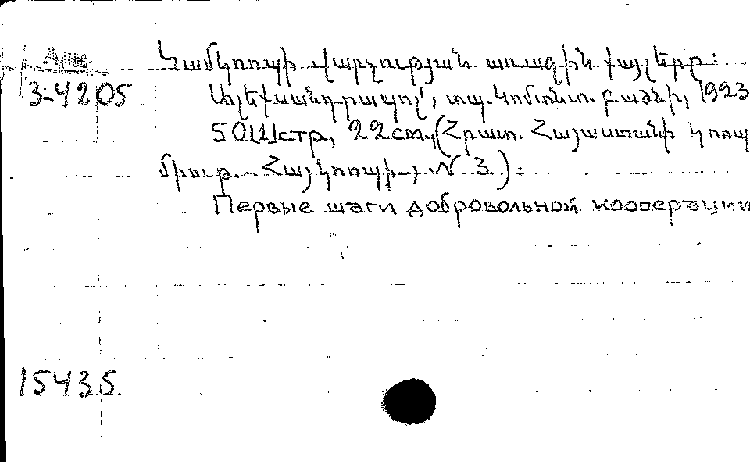 Арм
3-4205
Կամկոոպի վարչության առաջին քայլերը:
Ալեքսանդրապոլ, տպ. Կոմունտ. բաժնի, 1923
50 стр, 22см, (Հրատ. Հայաստանի Կոոպ
միութ. Հայկոոպի, N 3.):
Первые шаги добровольной кооперации
15435